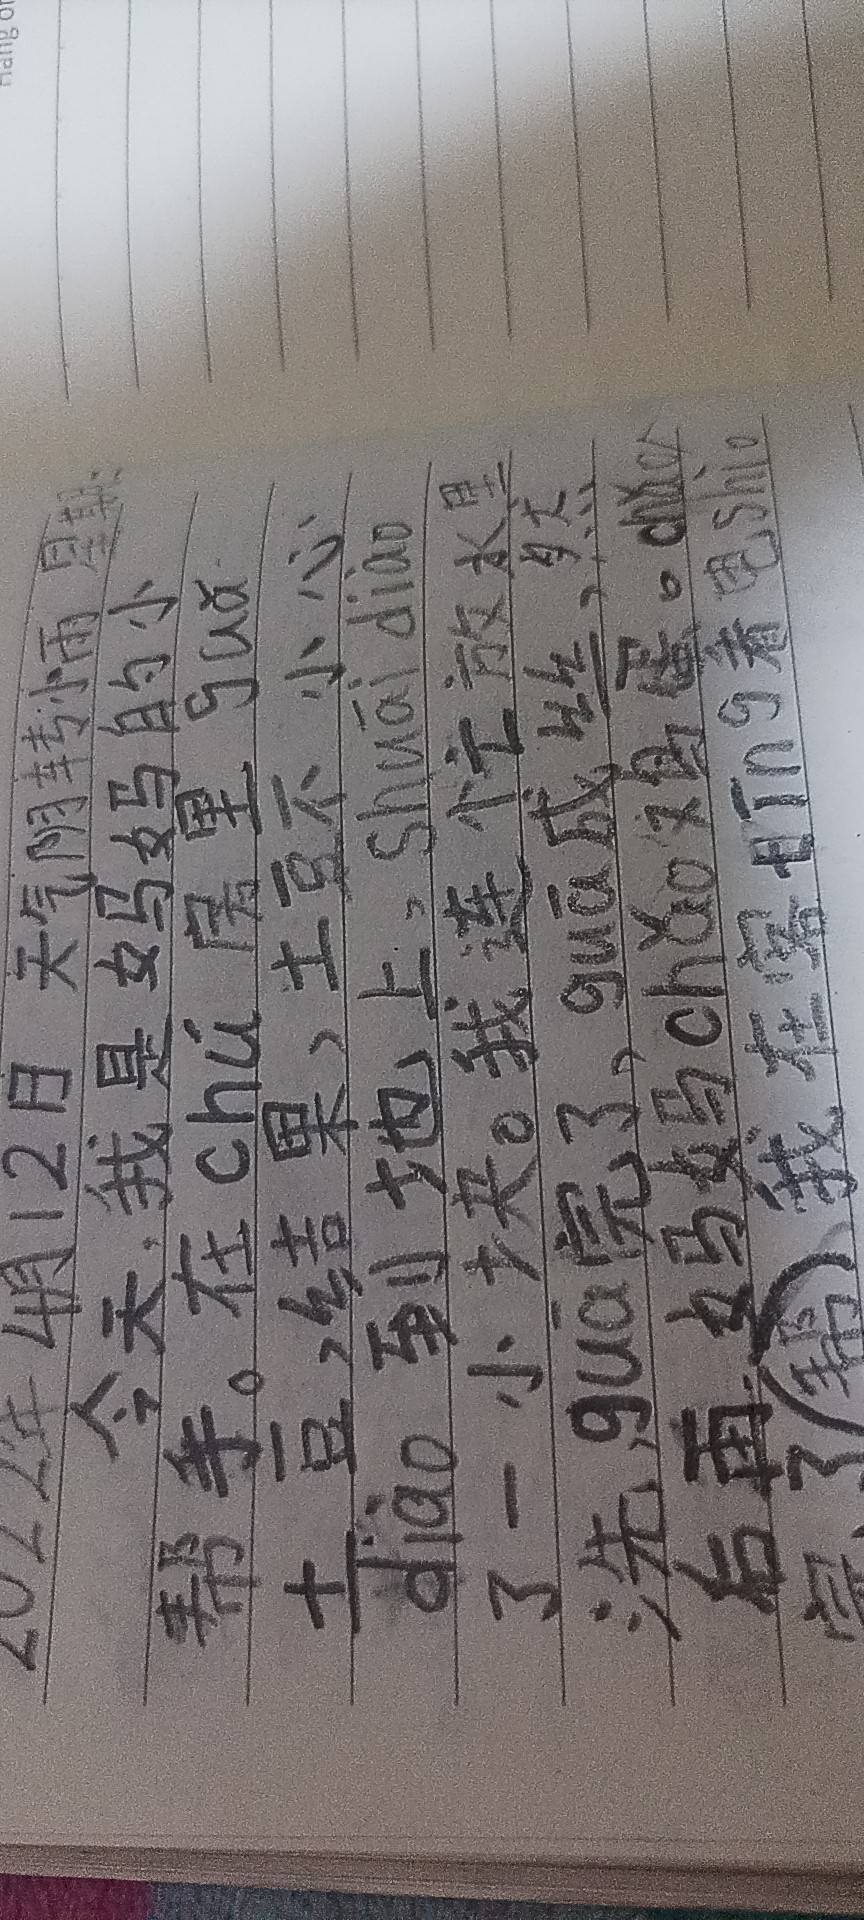 2022年4月12日 天气阴转小雨 星期二
今天,我是妈妈的小
帮手。在chú房里guā
土豆,结果,土豆不小心
diào到地上,shuāi diào
了一小块。我连忙放水里
洗,guā完了,guā成丝,然
后再妈妈chǎo又香。chǎo
完了(帮),我在旁tīng着电shì。